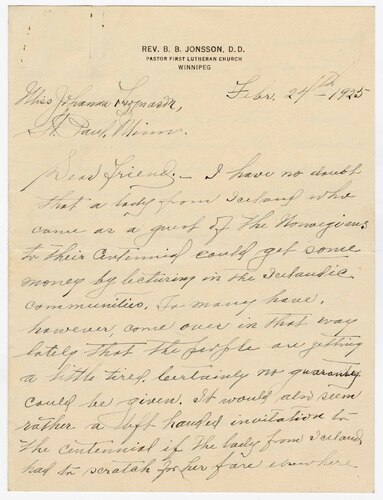 REV. B. B. JONSSON, D.D.
PASTOR FIRST LUTHERAN CHURCH
WINNIPEG
Febr. 24th 1925
Miss Johanna
St. Paul, Minn.
Dear friend. — I have no doubt
that a lady from Iceland who
came as a guest of the Norwegians
to their Centennial could get some
money by lecturing in the Icelandic
communities. So many have,
however come over in that way
lately that the people are getting
a little tired. Certainly no guaranty
could be given. It would also seem
rather a left handed invitation to
the centennial if the lady from Iceland
had to scratch for her fare elsewhere